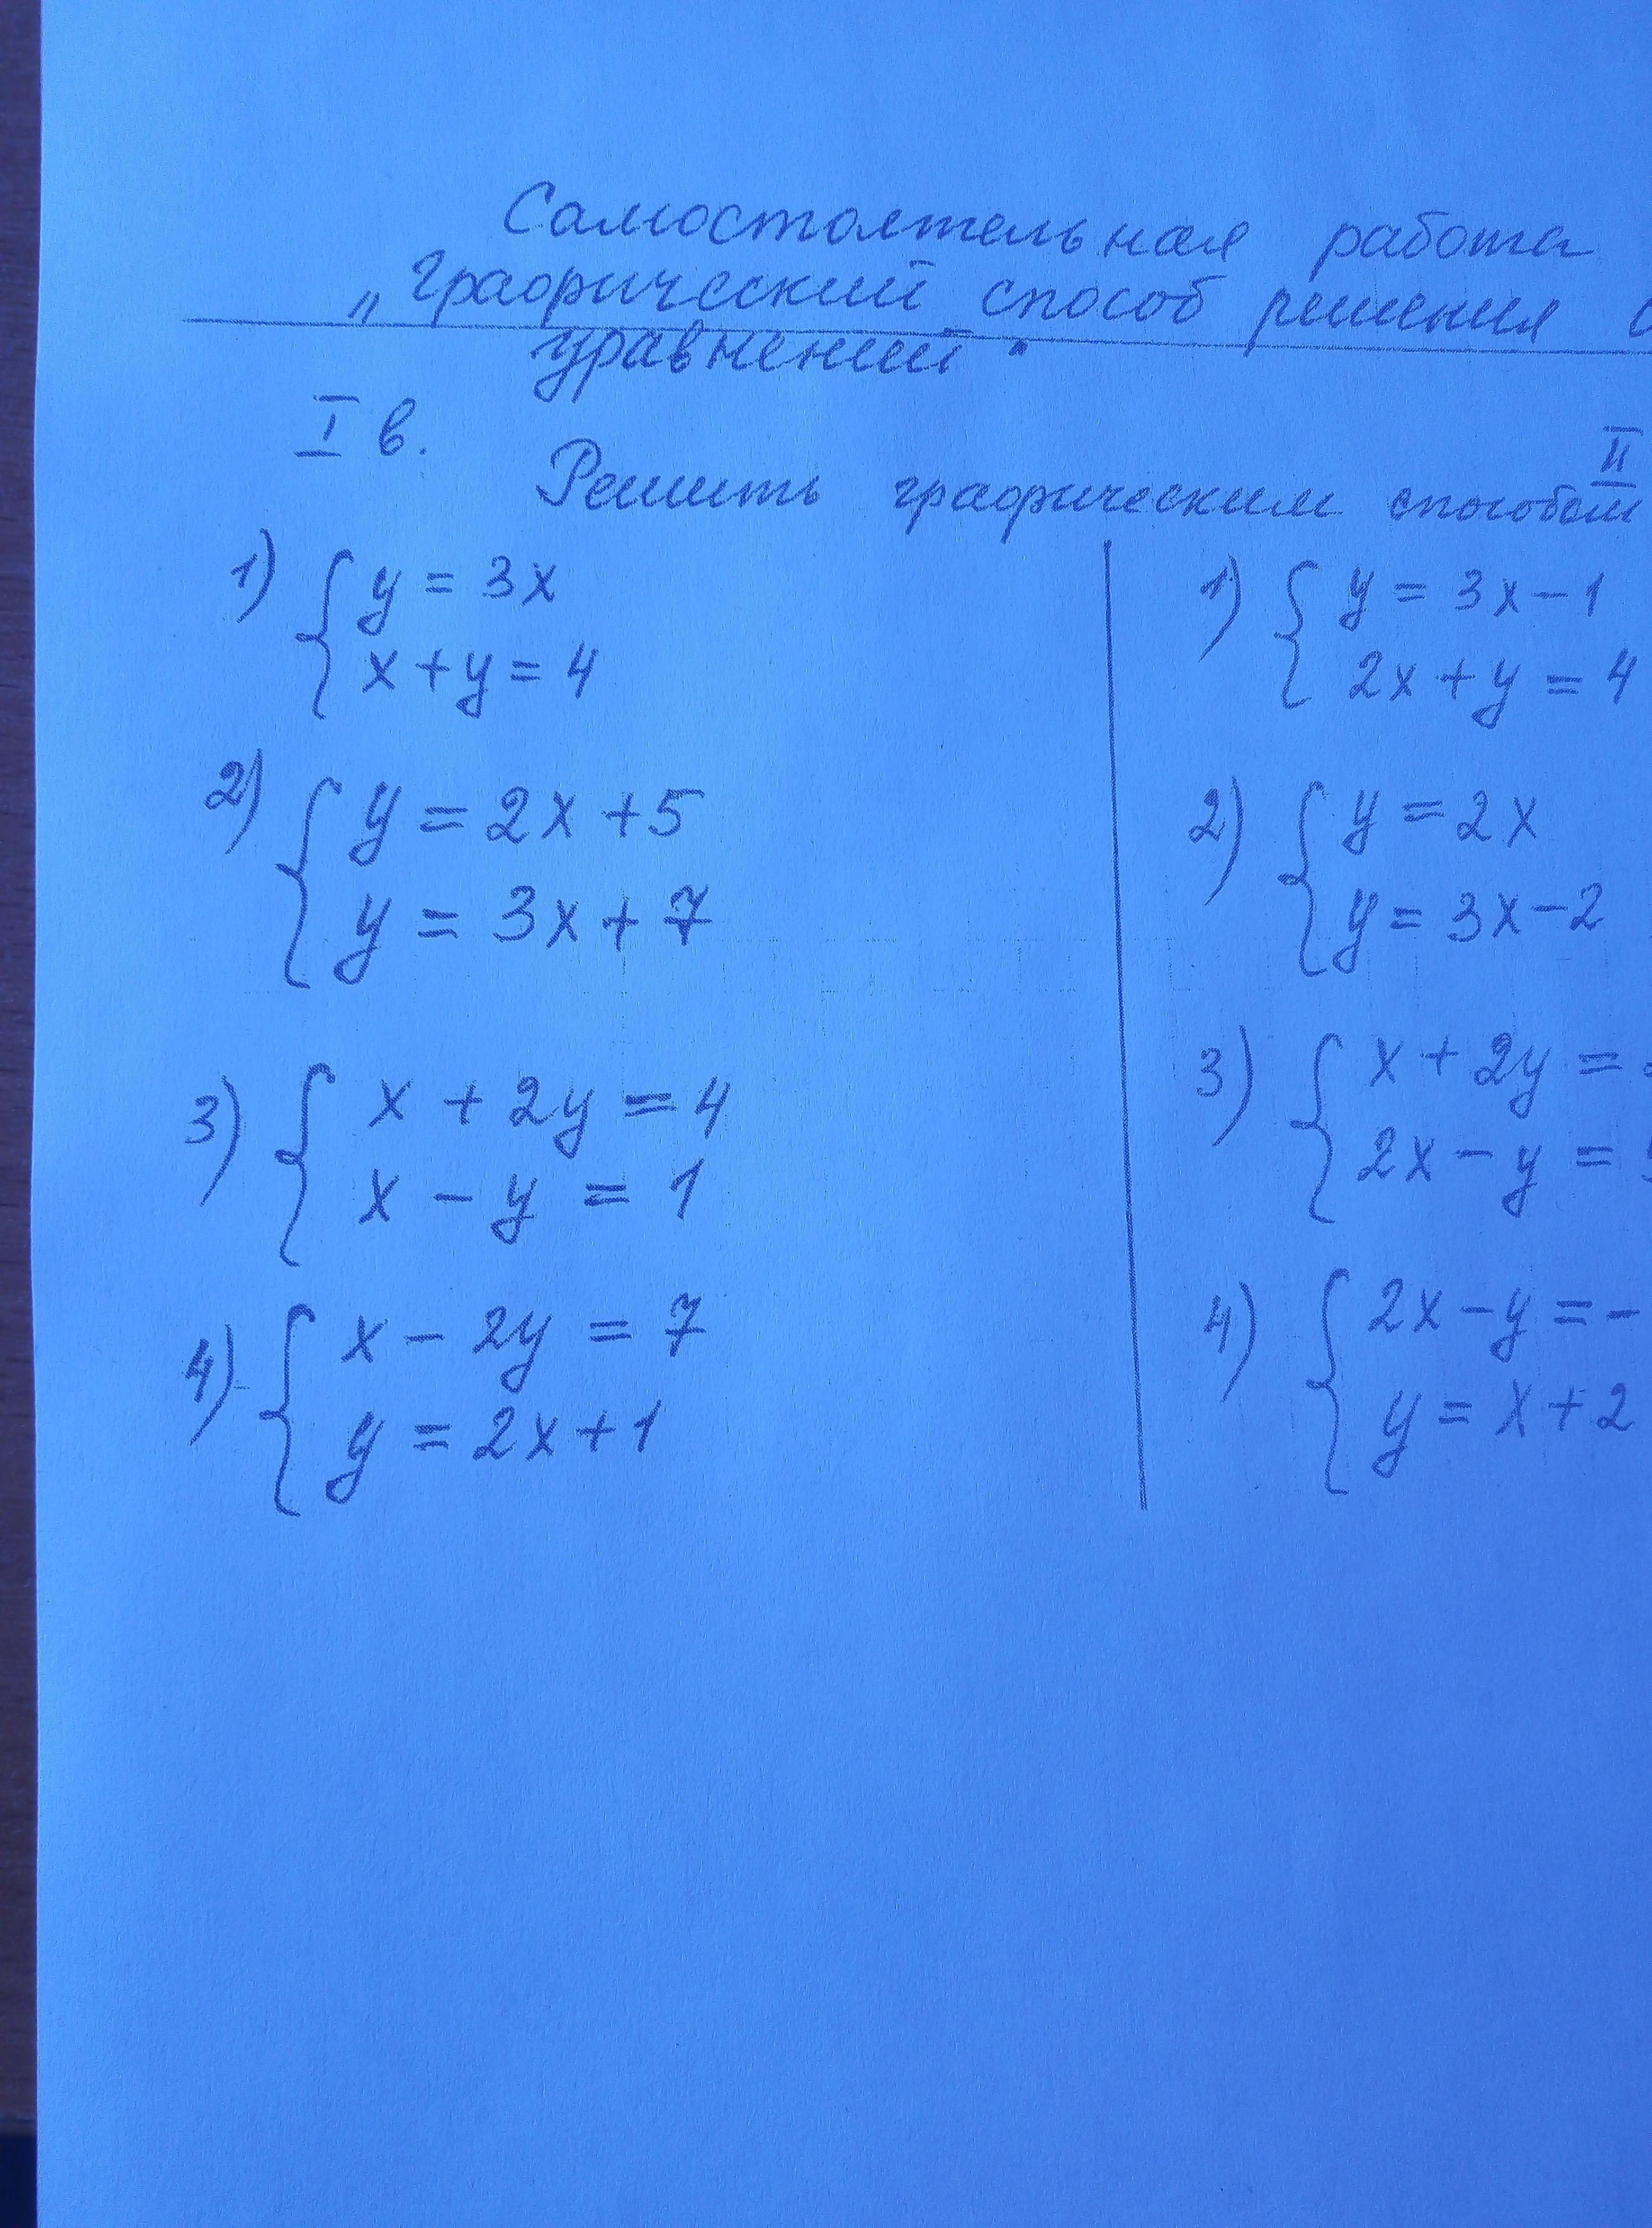 Самостоятельная работа
„Графический способ решения
уравнений"
I в.
II
Решить графическим способом
1) { y = 3x
x + y = 4
2) { y = 2x + 5
y = 3x + 7
3) { x + 2y = 4
x - y = 1
4) { x - 2y = 7
y = 2x + 1
1) { y = 3x - 1
2x + y = 4
2) { y = 2x
y = 3x - 2
3) { x + 2y =
2x - y =
4) { 2x - y = -
y = x + 2